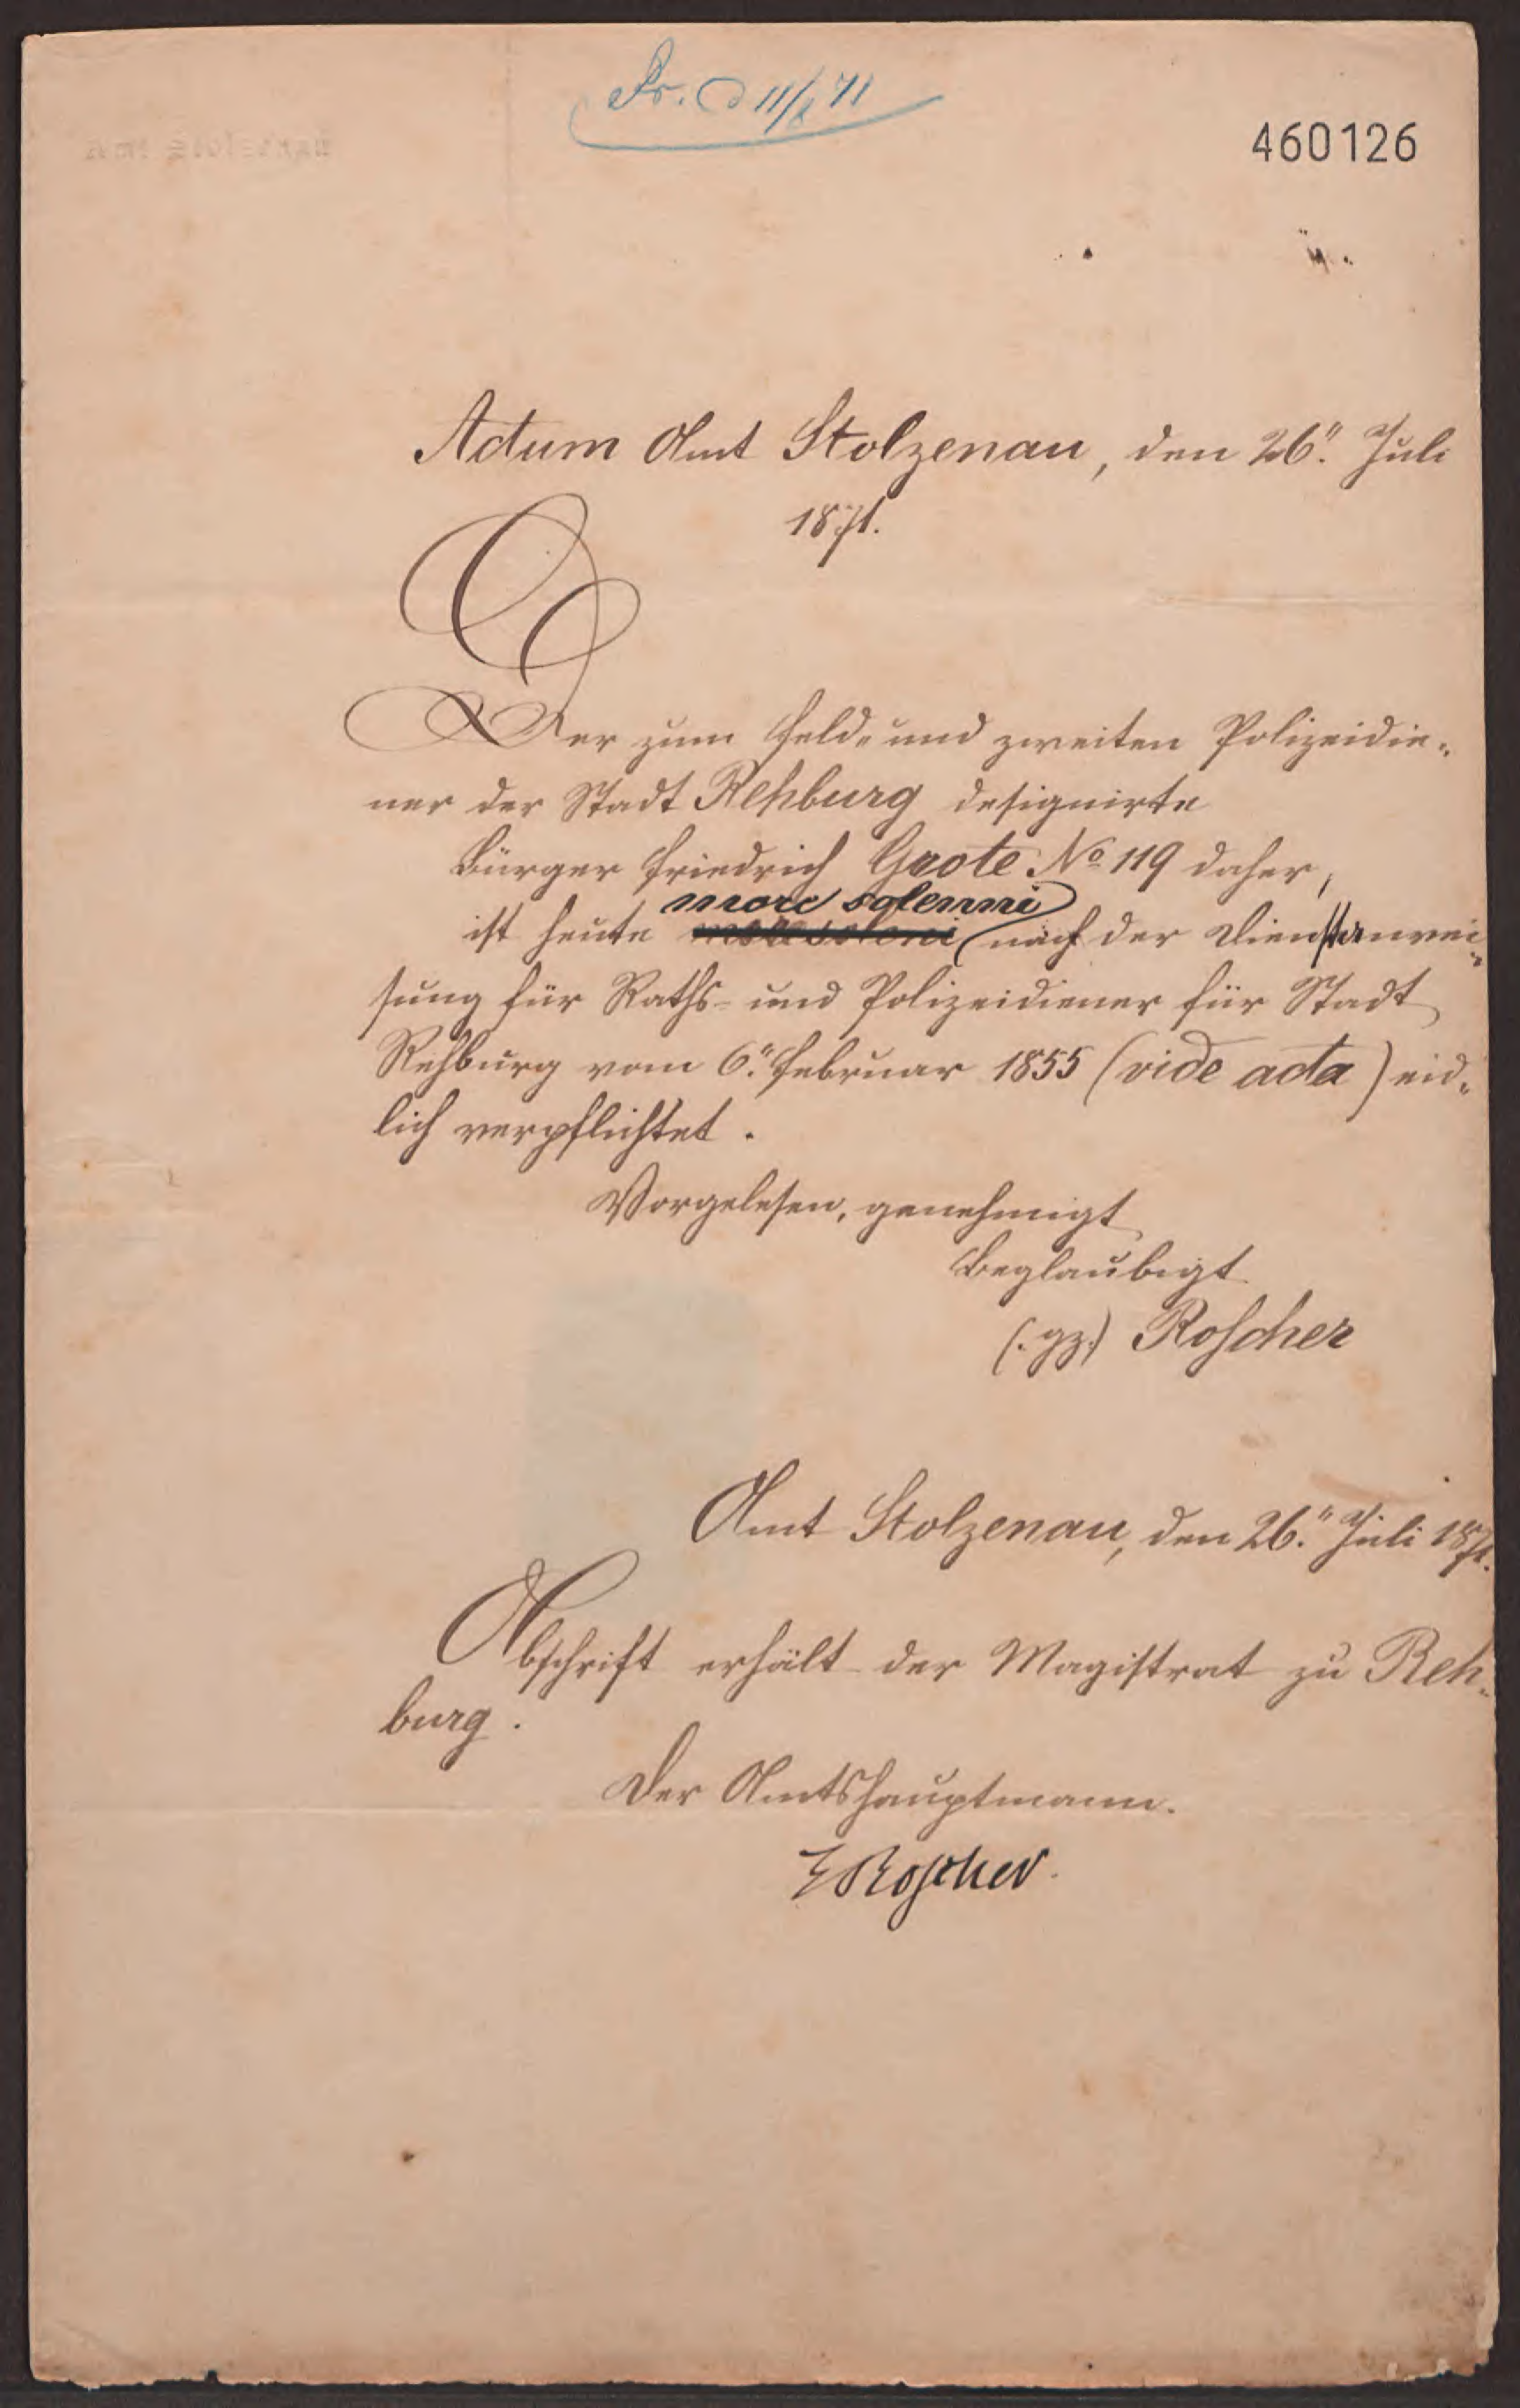 Pr. d 11/8 71
460126
Actum Amt Stolzenau, den 26." Juli
1871.
Der zum Feld- und zweiten Polizeidie-
ner der Stadt Rehburg designirte
Bürger Friedrich Grote No 119 daher,
more solemni
ist heute nach der Dienstanwei-
sung für Raths- und Polizeidiener für Stadt
Rehburg vom 6." Februar 1855 (vide acta) eid-
lich verpflichtet.
Vorgelesen, genehmigt
Beglaubigt
(:gz:) Roscher
Amt Stolzenau, den 26." Juli 1871.
Abschrift erhält der Magistrat zu Reh-
burg.
Der Amtshauptmann.
Roscher.